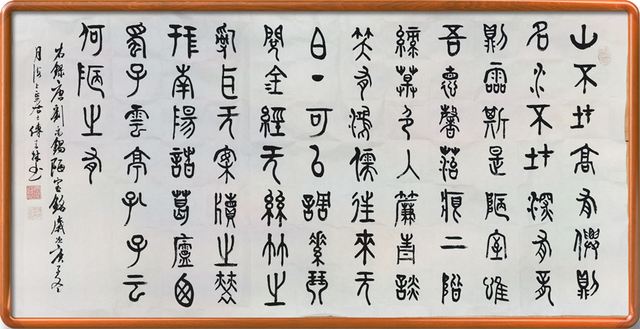 山不在高有僊則
名水不在深有龍
則靈斯是陋室唯
吾悳馨苔痕上階
綠草色入簾青談
笑有鴻儒往來无
白丁可以調素琴
閱金經无絲竹之
亂耳无案牘之勞
形南陽諸葛廬西
蜀子雲亭孔子云
何陋之有
右錄唐劉禹錫陋室銘歲次庚子冬
月於上